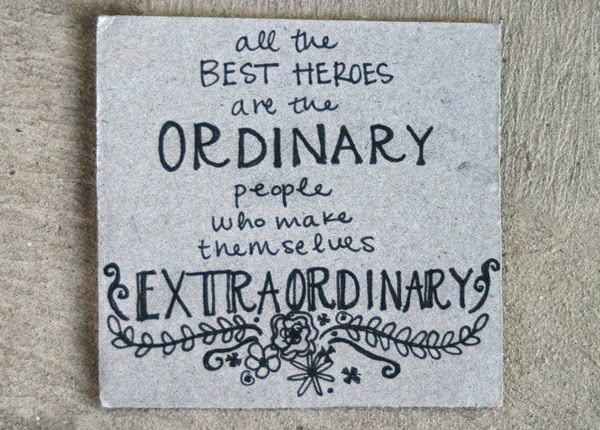 all the
BEST HEROES
are the
ORDINARY
people
who make
themselves
EXTRAORDINARY